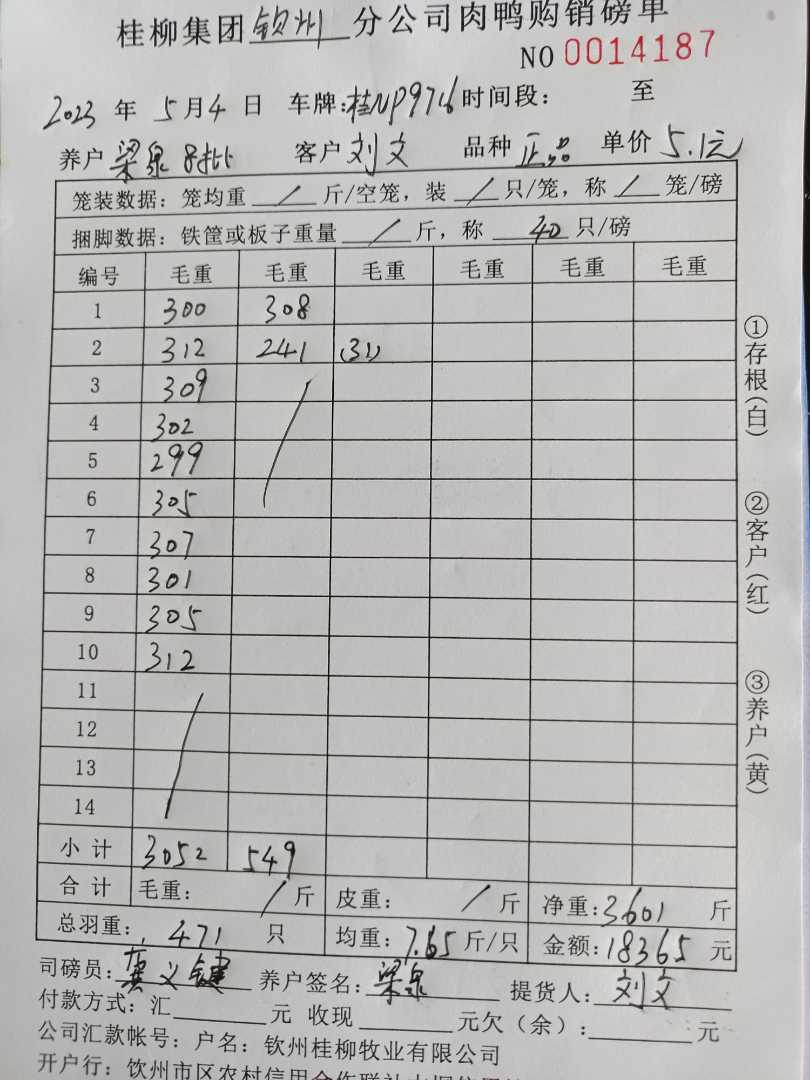 桂柳集团钦州分公司肉鸭购销磅单
NO 0014187
2023 年 5月4日 车牌:桂NP9716 时间段: 至
养户 梁泉 8批 客户 刘文 品种 正品 单价 5.1元
笼装数据: 笼均重 / 斤/空笼, 装 / 只/笼, 称 / 笼/磅
捆脚数据: 铁筐或板子重量 / 斤, 称 40 只/磅
编号 毛重 毛重 毛重 毛重 毛重 毛重
1 300 308
2 312 241 (31)
3 309
4 302
5 299
6 305
7 307
8 301
9 305
10 312
11
12
13
14
小计 3052 549
合计 毛重: / 斤 皮重: / 斤 净重:3601 斤
总羽重: 471 只 均重:7.65斤/只 金额:18365元
司磅员: 龚义键 养户签名: 梁泉 提货人: 刘文
付款方式: 汇 元 收现 元欠(余): 元
公司汇款帐号: 户名: 钦州桂柳牧业有限公司
开户行: 钦州市区农村信用合作联社
①存根(白)
②客户(红)
③养户(黄)